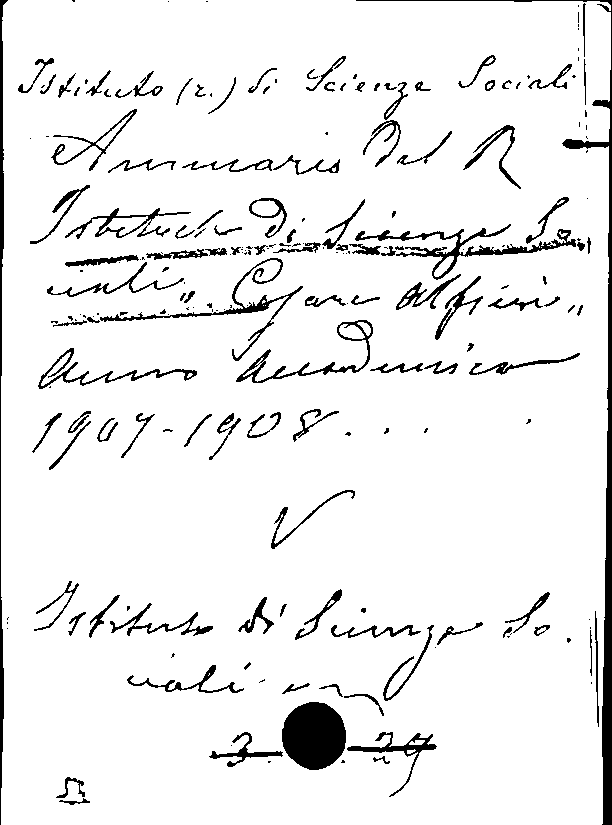 Istituto (r.) di Scienze Sociali
Annuario del R
Istituto di Scienze So
ciali "Cesare Alfieri"
Anno Accademico
1907-1908. . . .
V
Istituto di Scienze So.
ciali
3. . 29